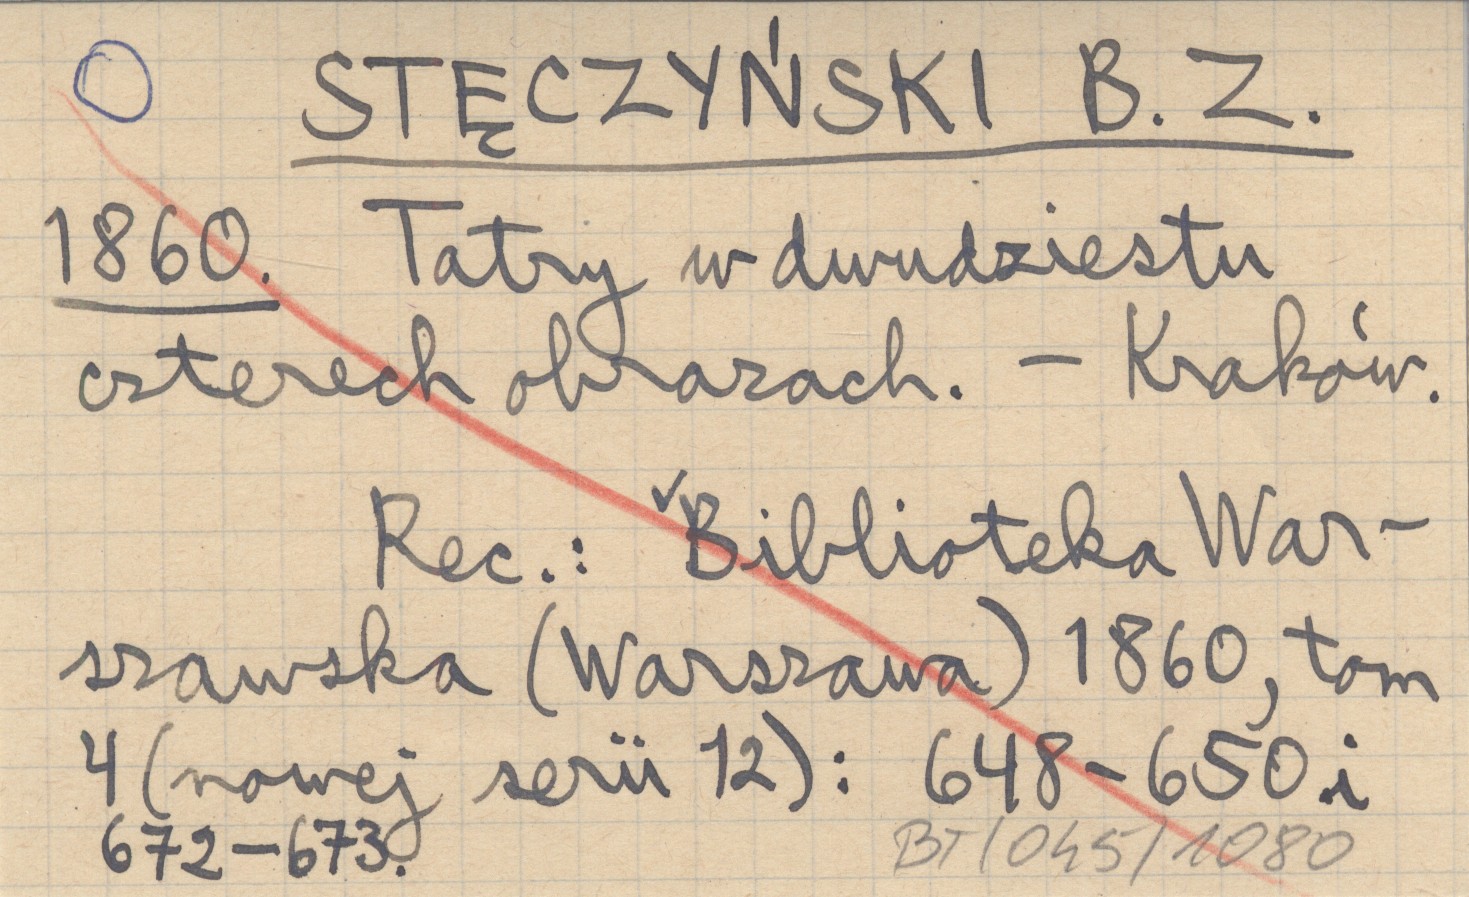 STĘCZYŃSKI B. Z.
1860. Tatry w dwudziestu
czterech obrazach. — Kraków.
Rec.: Biblioteka War-
szawska (Warszawa) 1860, tom
4 (nowej serii 12): 648-650 i
672-673.
BT/045/1080